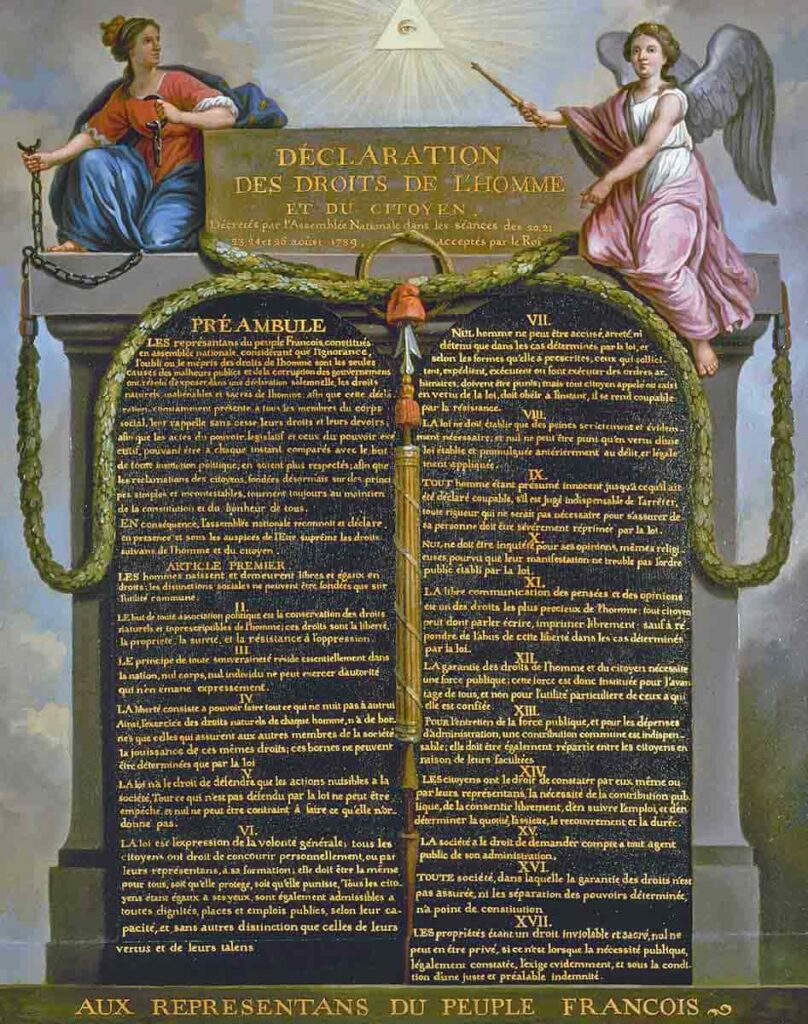 DÉCLARATION
DES DROITS DE L'HOMME
ET DU CITOYEN,
Décretés par l'Assemblée Nationale dans les séances des 20, 21
23, 24 et 26 août 1789, acceptés par le Roi
PRÉAMBULE
LES représentans du peuple Francois, constitués
en assemblée nationale, considérant que l'ignorance,
l'oubli ou le mépris des droits de l'homme sont les seules
causes des malheurs publics et de la corruption des gouvernemens
ont résolu d'exposer dans une déclaration solemnelle, les droits
naturels, inaliénables et sacrés de l'homme; afin que cette décla
ration, constamment présente a tous les membres du corps
social, leur rappelle sans cesse leurs droits et leurs devoirs
afin que les actes du pouvoir législatif et ceux du pouvoir exé
cutif, pouvant être a chaque instant comparés avec le but
de toute institution politique, en soient plus respectés; afin que
les reclamations des citoyens, fondées désormais sur des princi
pes simples et incontestables, tournent toujours au maintien
de la constitution et du bonheur de tous.
EN conséquence, l'assemblée nationale reconnoit et déclare
en presence et sous les auspices de l'Etre suprême les droits
suivans de l'homme et du citoyen.
ARTICLE PREMIER
LES hommes naissent et demeurent libres et égaux en
droits; les distinctions sociales ne peuvent être fondées que sur
l'utilité commune.
II.
LE but de toute association politique est la conservation des droits
naturels et imprescriptibles de l'homme; ces droits sont la liberté,
la propriété, la sureté, et la résistance à l'oppression.
III.
LE principe de toute souveraineté réside essentiellement dans
la nation, nul corps, nul individu ne peut exercer d'autorité
qui n'en émane expressement.
IV
LA liberté consiste a pouvoir faire tout ce qui ne nuit pas à autrui
Ainsi, l'exercice des droits naturels de chaque homme, n'a de bor-
nes que celles qui assurent aux autres membres de la société
la jouissance de ces mêmes droits; ces bornes ne peuvent
être déterminées que par la loi
V.
LA loi n'a le droit de défendre que les actions nuisibles a la
société. Tout ce qui n'est pas défendu par la loi ne peut être
empêché, et nul ne peut être contraint à faire ce qu'elle n'or-
donne pas.
VI.
LA loi est l'expression de la volonté générale; tous les
citoyens ont droit de concourir personnellement, ou par
leurs représentans, à sa formation; elle doit être la même
pour tous, soit qu'elle protege, soit qu'elle punisse, Tous les cito-
yens étant égaux a ses yeux, sont également admissibles a
toutes dignités, places et emplois publics, selon leur ca-
pacité, et sans autres distinction que celles de leurs
vertus et de leurs talens
VII.
NUL homme ne peut être accusé, arreté, ni
détenu que dans les cas déterminés par la loi, et
selon les formes qu'elle a prescrites, ceux qui sollici-
tent, expédient, exécutent ou font exécuter des ordres ar-
bitraires, doivent être punis; mais tout citoyen appelé ou saisi
en vertu de la loi, doit obéir a l'instant, il se rend coupable
par la résistance.
VIII.
LA loi ne doit établir que des peines strictement et évidem-
ment nécessaire, et nul ne peut être puni qu'en vertu d'une
loi établie et promulguée antérieurement au délit, et légale
ment appliquée.
IX.
TOUT homme étant présumé innocent jusqu'a ce qu'il ait
été déclaré coupable, s'il est jugé indispensable de l'arrêter,
toute rigueur qui ne serait pas nécessaire pour s'assurer de
sa personne doit être sévèrement réprimée par la loi.
X.
NUL ne doit être inquiété pour ses opinions, mêmes religi
euses pourvu que leur manifestation ne trouble pas l'ordre
public établi par la loi.
XI.
LA libre communication des pensées et des opinions
est un des droits les plus precieux de l'homme; tout citoyen
peut donc parler écrire, imprimer librement; sauf à ré
pondre de l'abus de cette liberté dans les cas déterminés
par la loi.
XII.
LA garantie des droits de l'homme et du citoyen nécessite
une force publique; cette force est donc instituée pour l'avan
tage de tous, et non pour l'utilité particuliere de ceux a qui
elle est confiée
XIII.
POUR l'entretien de la force publique, et pour les dépenses
d'administration, une contribution commune est indispen-
sable; elle doit être également répartie entre les citoyens en
raison de leurs facultées
XIV.
LES citoyens ont le droit de constater par eux même ou
par leurs représentans, la nécessité de la contribution pub
lique, de la consentir librement, d'en suivre l'emploi, et d'en
déterminer la quotité, l'assiette, le recouvrement et la durée.
XV.
LA société a le droit de demander compte a tout agent
public de son administration.
XVI.
TOUTE société, dans laquelle la garantie des droits n'est
pas assurée, ni les séparation des pouvoirs déterminée,
n'a point de constitution
XVII.
LES propriétés étant un droit inviolable et sacré, nul ne
peut en être privé, si ce n'est lorsque la nécessité publique,
légalement constatée, l'exige evidemment, et sous la condi
tion d'une juste et préalable indemnité.
AUX REPRESENTANS DU PEUPLE FRANCOIS